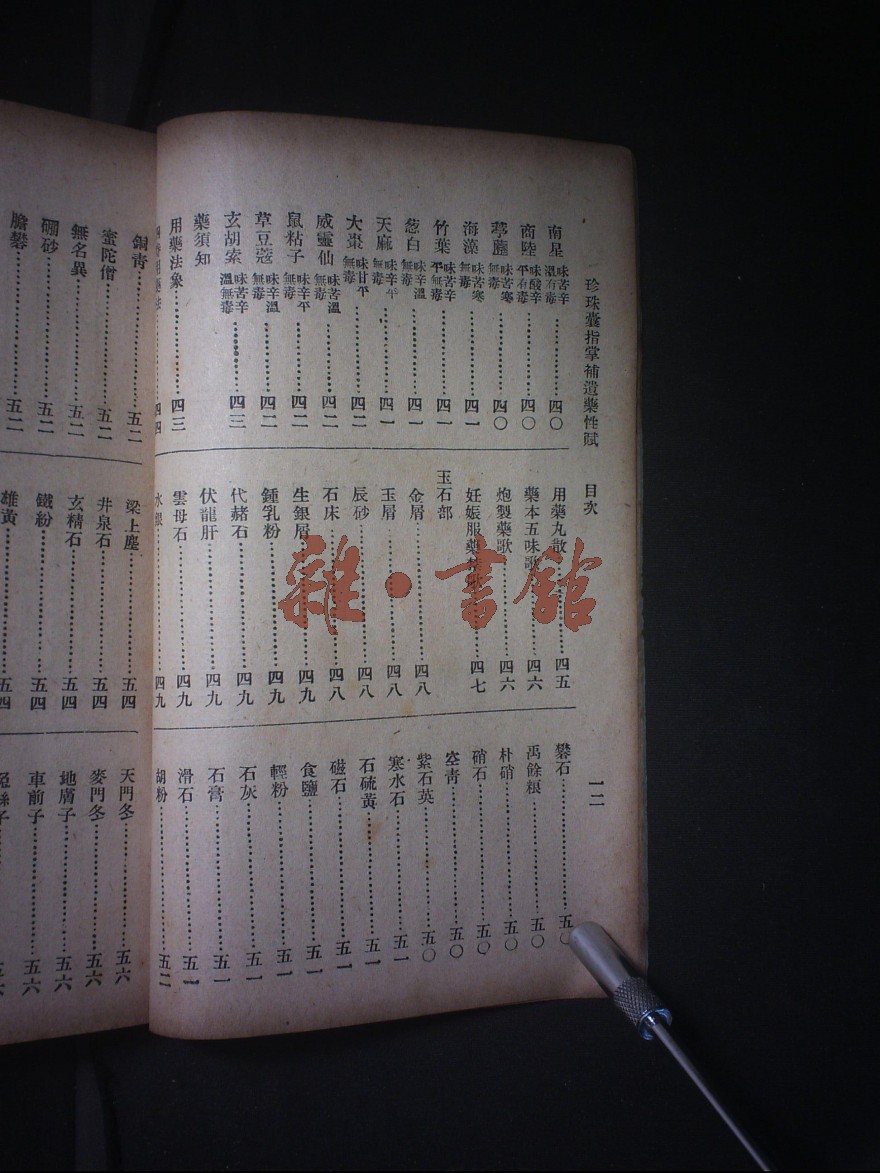 珍珠囊指掌補遺藥性賦 目次 一二
南星 味苦辛溫有毒 四〇
商陸 味酸辛平有毒 四〇
葶藶 味苦寒無毒 四〇
海藻 味苦寒無毒 四一
竹葉 味苦辛平無毒 四一
葱白 味辛溫無毒 四一
天麻 味辛平無毒 四一
大棗 味甘平無毒 四二
威靈仙 味苦溫無毒 四二
鼠粘子 味辛平無毒 四二
草豆蔻 味辛溫無毒 四二
玄胡索 味苦辛溫無毒 四三
藥須知
用藥法象 四三
四四
用藥丸散 四五
藥本五味歌 四六
炮製藥歌 四六
妊娠服藥禁歌 四七
玉石部
金屑 四八
玉屑 四八
辰砂 四八
石床 四八
生銀屑 四九
鍾乳粉 四九
代赭石 四九
伏龍肝 四九
雲母石 四九
水銀 四九
礬石 五〇
禹餘粮 五〇
朴硝 五〇
硝石 五〇
空青 五〇
紫石英 五〇
寒水石 五一
石硫黃 五一
磁石 五一
食鹽 五一
輕粉 五一
石灰 五一
石膏 五一
滑石 五一
胡粉 五二
銅青 五二
蜜陀僧 五二
無名異 五二
硼砂 五二
膽礬 五二
梁上塵 五四
井泉石 五四
玄精石 五四
鐵粉 五四
雄黃 五四
天門冬 五六
麥門冬 五六
地膚子 五六
車前子 五六
菟絲子 五六
雜·書館